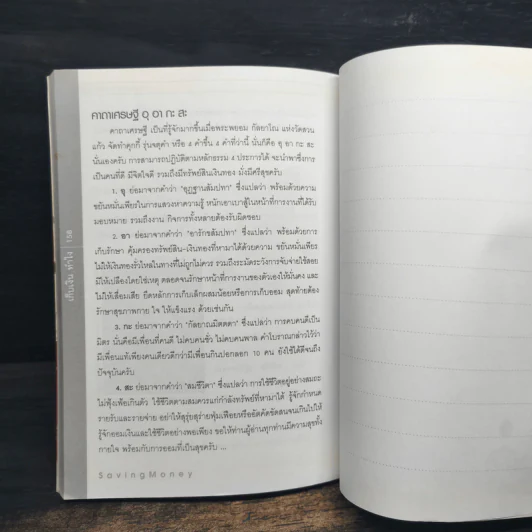 คาถาเศรษฐี อุ อา กะ สะ
คาถาเศรษฐี เป็นที่รู้จักมากขึ้นเมื่อพระพยอม กัลยาโณ แห่งวัดสวน
แก้ว จัดทำคุกกี้ รุ่นจตุคำ หรือ 4 คำขึ้น 4 คำที่ว่านี้ นั่นก็คือ อุ อา กะ สะ
นั่นเองครับ การสามารถปฏิบัติตามหลักธรรม 4 ประการได้ จะนำพาซึ่งการ
เป็นคนที่ดี มีจิตใจดี รวมถึงมีทรัพย์สินเงินทอง มั่งมีศรีสุขครับ
1. อุ ย่อมาจากคำว่า "อุฏฐานสัมปทา" ซึ่งแปลว่า พร้อมด้วยความ
ขยันหมั่นเพียรในการแสวงหาความรู้ หนักเอาเบาสู้ในหน้าที่การงานที่ได้รับ
มอบหมาย รวมถึงงาน กิจการทั้งหลายต้องรับผิดชอบ
2. อา ย่อมาจากคำว่า "อารักขสัมปทา" ซึ่งแปลว่า พร้อมด้วยการ
เก็บรักษา คุ้มครองทรัพย์สิน-เงินทองที่หามาได้ด้วยความ ขยันหมั่นเพียร
ไม่ให้เงินทองรั่วไหลในทางที่ไม่ถูกไม่ควร รวมถึงระมัดระวังการจับจ่ายใช้สอย
มิให้เปลืองโดยใช่เหตุ ตลอดจนรักษาหน้าที่การงานของตัวเองให้มั่นคง และ
ไม่ให้เสื่อมเสีย ยึดหลักการเก็บเล็กผสมน้อยหรือการเก็บออม สุดท้ายต้อง
รักษาสุขภาพกาย ใจ ให้แข็งแรง ด้วยเช่นกัน
3. กะ ย่อมาจากคำว่า "กัลยาณมิตตตา" ซึ่งแปลว่า การคบคนดีเป็น
มิตร นั่นคือมีเพื่อนที่คนดี ไม่คบคนชั่ว ไม่คบคนพาล คำโบราณกล่าวไว้ว่า
มีเพื่อนแท้เพียงคนเดียวดีกว่ามีเพื่อนกินปอกลอก 10 คน ยังใช้ได้ดีจนถึง
ปัจจุบันครับ
4. สะ ย่อมาจากคำว่า "สมชีวิตา" ซึ่งแปลว่า การใช้ชีวิตอยู่อย่างสมถะ
ไม่ฟุ้งเฟ้อเกินตัว ใช้ชีวิตตามสมควรแก่กำลังทรัพย์ที่หามาได้ รู้จักกำหนด
รายรับและรายจ่าย อย่าให้สุรุ่ยสุร่ายฟุ่มเฟือยหรืออัตคัดขัดสนจนเกินไปให้
รู้จักออมเงินและใช้ชีวิตอย่างพอเพียง ขอให้ท่านผู้อ่านทุกท่านมีความสุขทั้ง
กายใจ พร้อมกับการออมที่เป็นสุขครับ ...
SavingMoney
เก็บเงิน ทำไง | 158